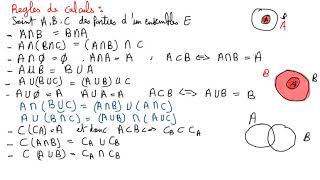 Règles de Calculs :
Soient A, B, C des parties d'un ensemble E
- A∩B = B∩A
- A∩(B∩C) = (A∩B)∩C
- A∩∅ = ∅ , A∩A = A , A⊂B ⟺ A∩B = A
- A∪B = B∪A
- A∪(B∪C) = (A∪B)∪C
- A∪∅ = A A∪A = A A⊂B ⟺ A∪B = B
A∩(B∪C) = (A∩B)∪(A∩C)
A∪(B∩C) = (A∪B)∩(A∪C)
- C(CA) = A et donc A⊂B ⟺ C_B ⊂ C_A
- C(A∩B) = C_A ∪ C_B
- C(A∪B) = C_A ∩ C_B
B
A
B
A
A
B